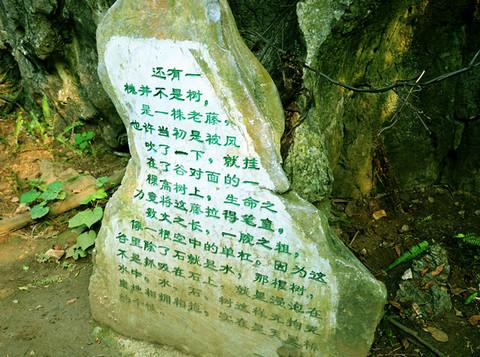 还有一
株并不是树，
是一株老藤，
也许当初是被风
吹了一下，就挂
在了谷对面的一
棵高树上，生命之
力竟将这藤拉得笔直，
数丈之长，一腕之粗，
像一根空中的单杠。因为这
谷里除了石就是水，那棵树，
不是抓吸在石上，就是浸泡在
水中，水、石、树这样无拘无